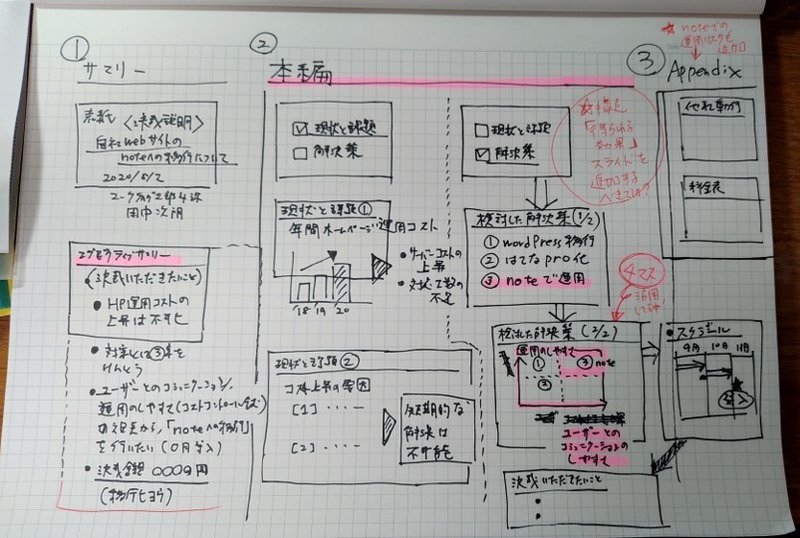 ①
サマリー
表紙
〈決裁説明〉
自社webサイトの
noteへの移行について
2020/5/2
田中次朗
エグゼクティブサマリー
(決裁いただきたいこと)
・HP運用コストの
上昇は不可ヒ
・対策として③案を
けんとう
・ユーザーとのコミュニケーション、
運用のしやすさ(コストコントロール含む)
から、「noteへの移行」
を行いたい(〇月導入)
・決裁金額 〇〇〇〇円
(移行ヒヨウ)
②
本編
☑ 現状と課題
□ 解決策
現状と課題①
年間ホームページ運用コスト
・サーバーコストの
上昇
・対状工数の
不足
'18 '19 '20
現状と課題②
コスト上昇の要因
[1]・・・ー
[2]・・・ー
短期的な
解決は
不可能
□ 現状と課題
☑ 解決策
検討した解決策(1/2)
① wordPress移行
② はてなpro化
③ noteで運用
検討した解決策(2/2)
運用のしやすさ
①
②
③note
ユーザーとの
コミュニケーションの
しやすさ
決裁いただきたいこと
・
・
☆移行後
「得られる
効果」
スライドを
追加する
べきでは?
4マス
活用
してみた
③
Appendix
☆ noteでの
運用リスクも
追加
他社動向
料金表
・スケジュール
9月 10月 11月
導入